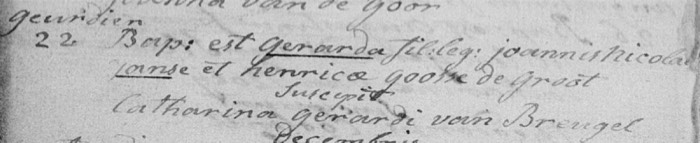 van de Goor
geurdien
22 Bap: est Gerarda fil: leg: joannis Nicolai
janse et henricæ goosse de groot
Suscepit
Catharina gerardi van Breugel
Decembris